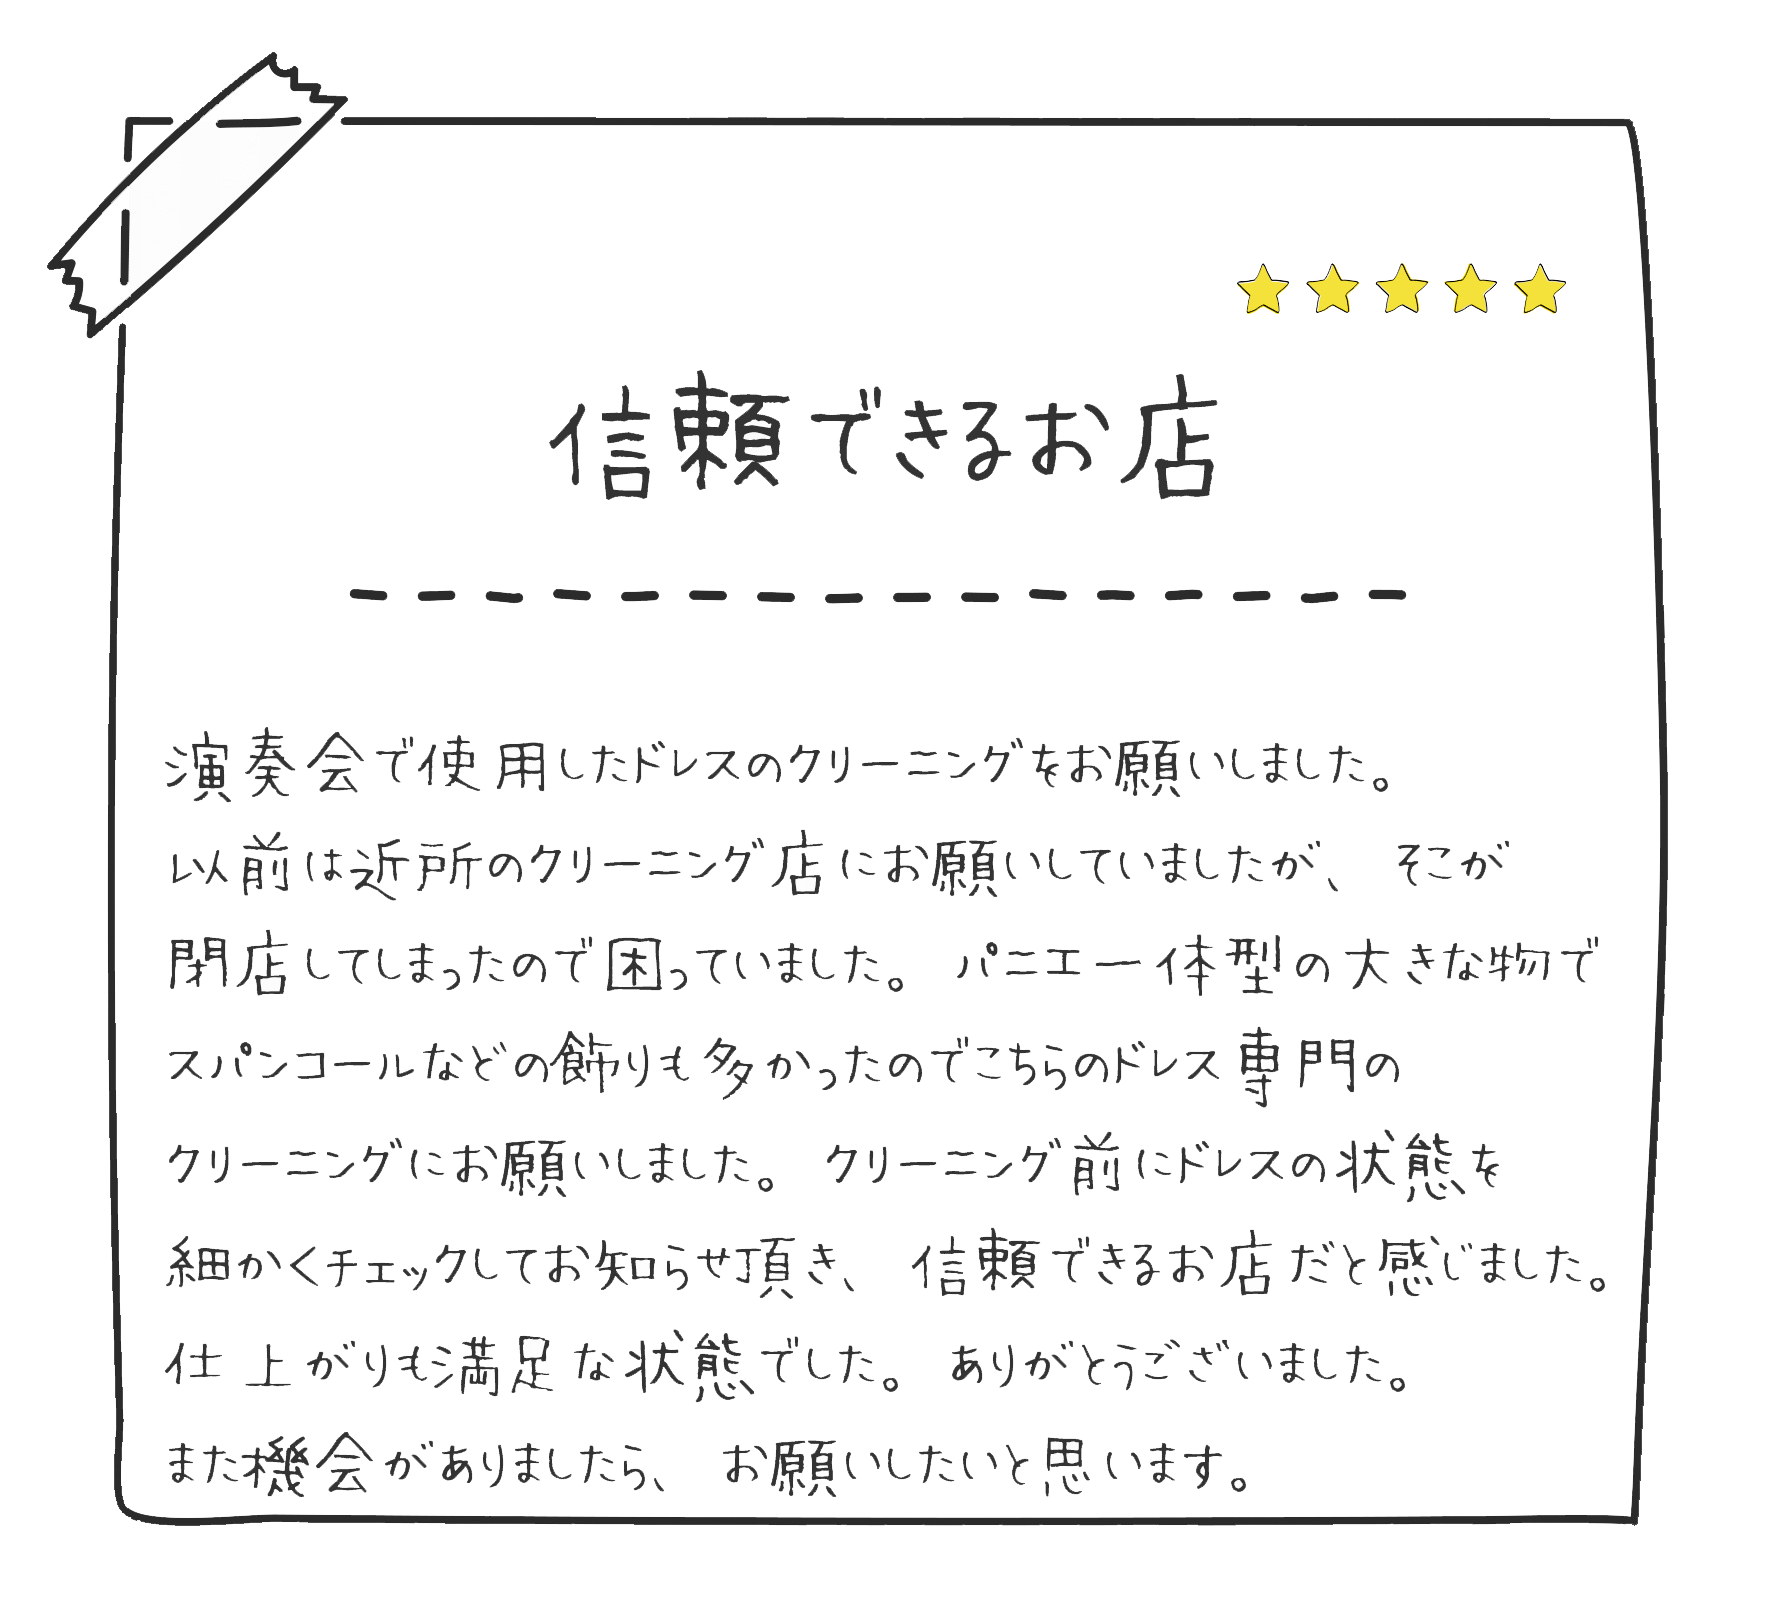 信頼できるお店
演奏会で使用したドレスのクリーニングをお願いしました。
以前は近所のクリーニング店にお願いしていましたが、そこが
閉店してしまったので困っていました。パニエ一体型の大きな物で
スパンコールなどの飾りも多かったのでこちらのドレス専門の
クリーニングにお願いしました。クリーニング前にドレスの状態を
細かくチェックしてお知らせ頂き、信頼できるお店だと感じました。
仕上がりも満足な状態でした。ありがとうございました。
また機会がありましたら、お願いしたいと思います。